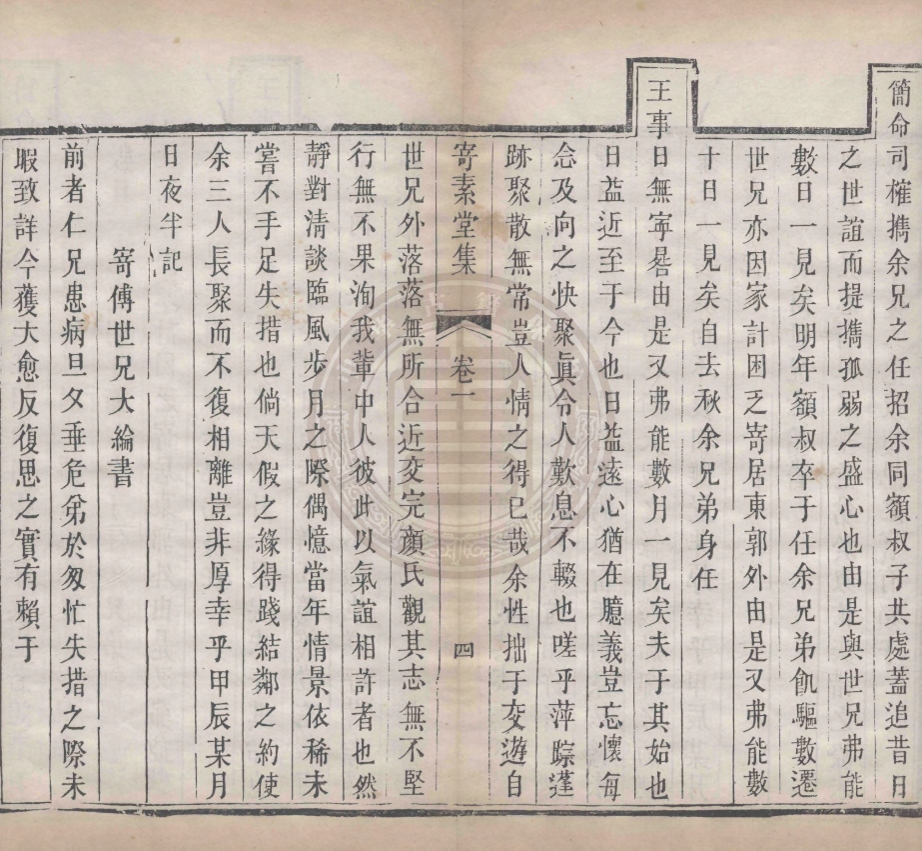 簡命司榷擕余兄之任招余同額叔子共處蓋追昔日
之世誼而提擕孤弱之盛心也由是與世兄弗能
數日一見矣明年額叔卒于任余兄弟飢驅數遷
世兄亦因家計困乏寄居東郭外由是又弗能數
十日一見矣自去秋余兄弟身任
王事
日無寧晷由是又弗能數月一見矣夫于其始也
日益近至于今也日益遠心猶在臆義豈忘懷每
念及向之快聚眞令人歎息不輟也嗟乎萍踪蓬
跡聚散無常豈人情之得已哉余性拙于交遊自
寄素堂集 卷一 四
世兄外落落無所合近交完顏氏觀其志無不堅
行無不果洵我輩中人彼此以氣誼相許者也然
靜對淸談臨風步月之際偶憶當年情景依稀未
嘗不手足失措也倘天假之緣得踐結鄰之約使
余三人長聚而不復相離豈非厚幸乎甲辰某月
日夜半記
寄傅世兄大綸書
前者仁兄患病旦夕垂危弟於匆忙失措之際未
暇致詳今獲大愈反復思之實有賴于